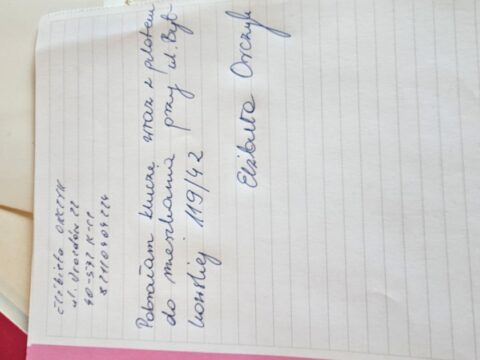 Elżbieta ORCZYK
ul. 22
40-592 K-ce
Pobrałam klucze wraz z pilotem
do mieszkania przy ul. Byt-
kowskiej 119/42
Elżbieta Orczyk